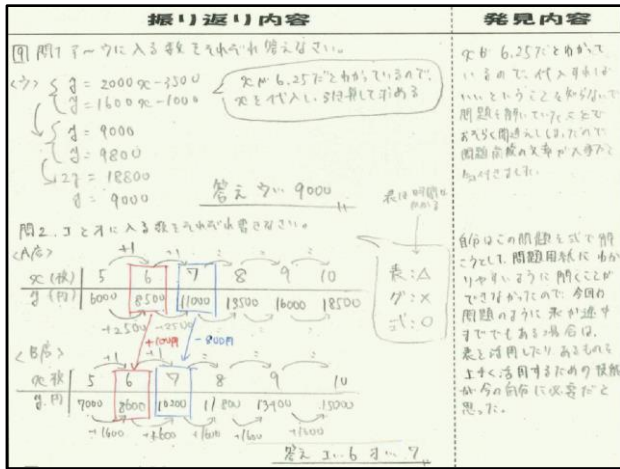 振り返り内容
発見内容
⑨ 問1 ア〜ウに入る数をそれぞれ答えなさい。
<ウ> y = 2000x-3500
y = 1600x-1000
xが6.25だとわかっているので、
xを代入し、計算して求める
y = 9000
y = 9800
2y = 18800
y = 9000
答え ウ… 9000
問2. エとオに入る数をそれぞれ書きなさい。
<A店>
+1
x(枚) 5 6 7 8 9 10
y(円) 6000 8500 11000 13500 16000 18500
+2500 +2500
+100円 -800円
<B店>
+1 +1
x 枚 5 6 7 8 9 10
y 円 7000 8600 10200 11800 13400 15000
+1600 +1600 +1600 +1600
答え エ… 6 オ… 7
表:△
グ:×
式:○
xが 6.25だとわかって
いるので、代入すれば
いいということを知らないで
問題を解いていたことで
おそらく間違えてしまったので
自分はこの問題を式で解
こうとして、問題用紙にわか
りやすいように解くことが
できなかったので、今回の
問題のように表が
場合は、
表を活用したりあるものを
上手く活用するための技能
が今の自分に必要だと
思った。